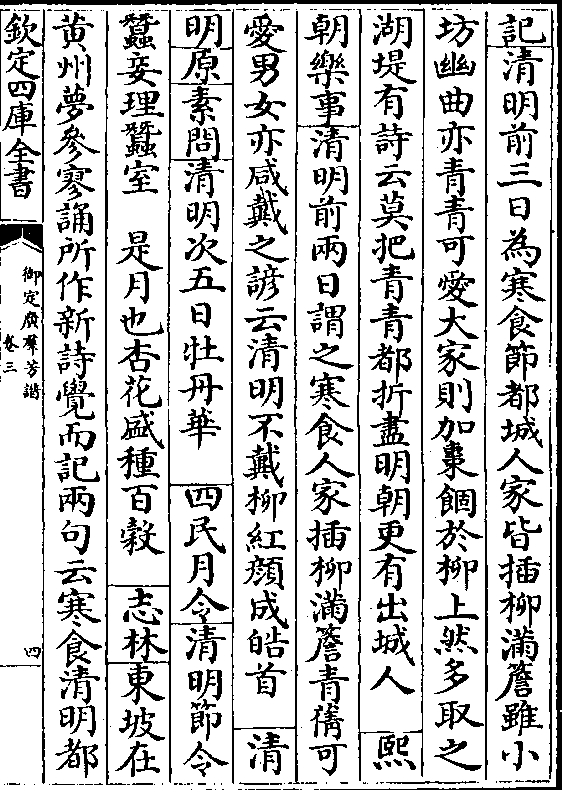 記清明前三日為寒食節都城人家皆插柳滿簷雖小
坊幽曲亦青青可愛大家則加棗䭅於柳上然多取之
湖堤有詩云莫把青青都折盡明朝更有出城人　熙
朝樂事清明前兩日謂之寒食人家插柳滿簷青蒨可
愛男女亦咸戴之諺云清明不戴柳紅顔成皓首　清
明原素問清明次五日牡丹華　四民月令清明節令
蠶妾理蠶室　是月也杏花盛種百穀　志林東坡在
黄州夢參寥誦所作新詩覺而記兩句云寒食清明都
欽定四庫全書
御定廣羣芳譜
卷三
四